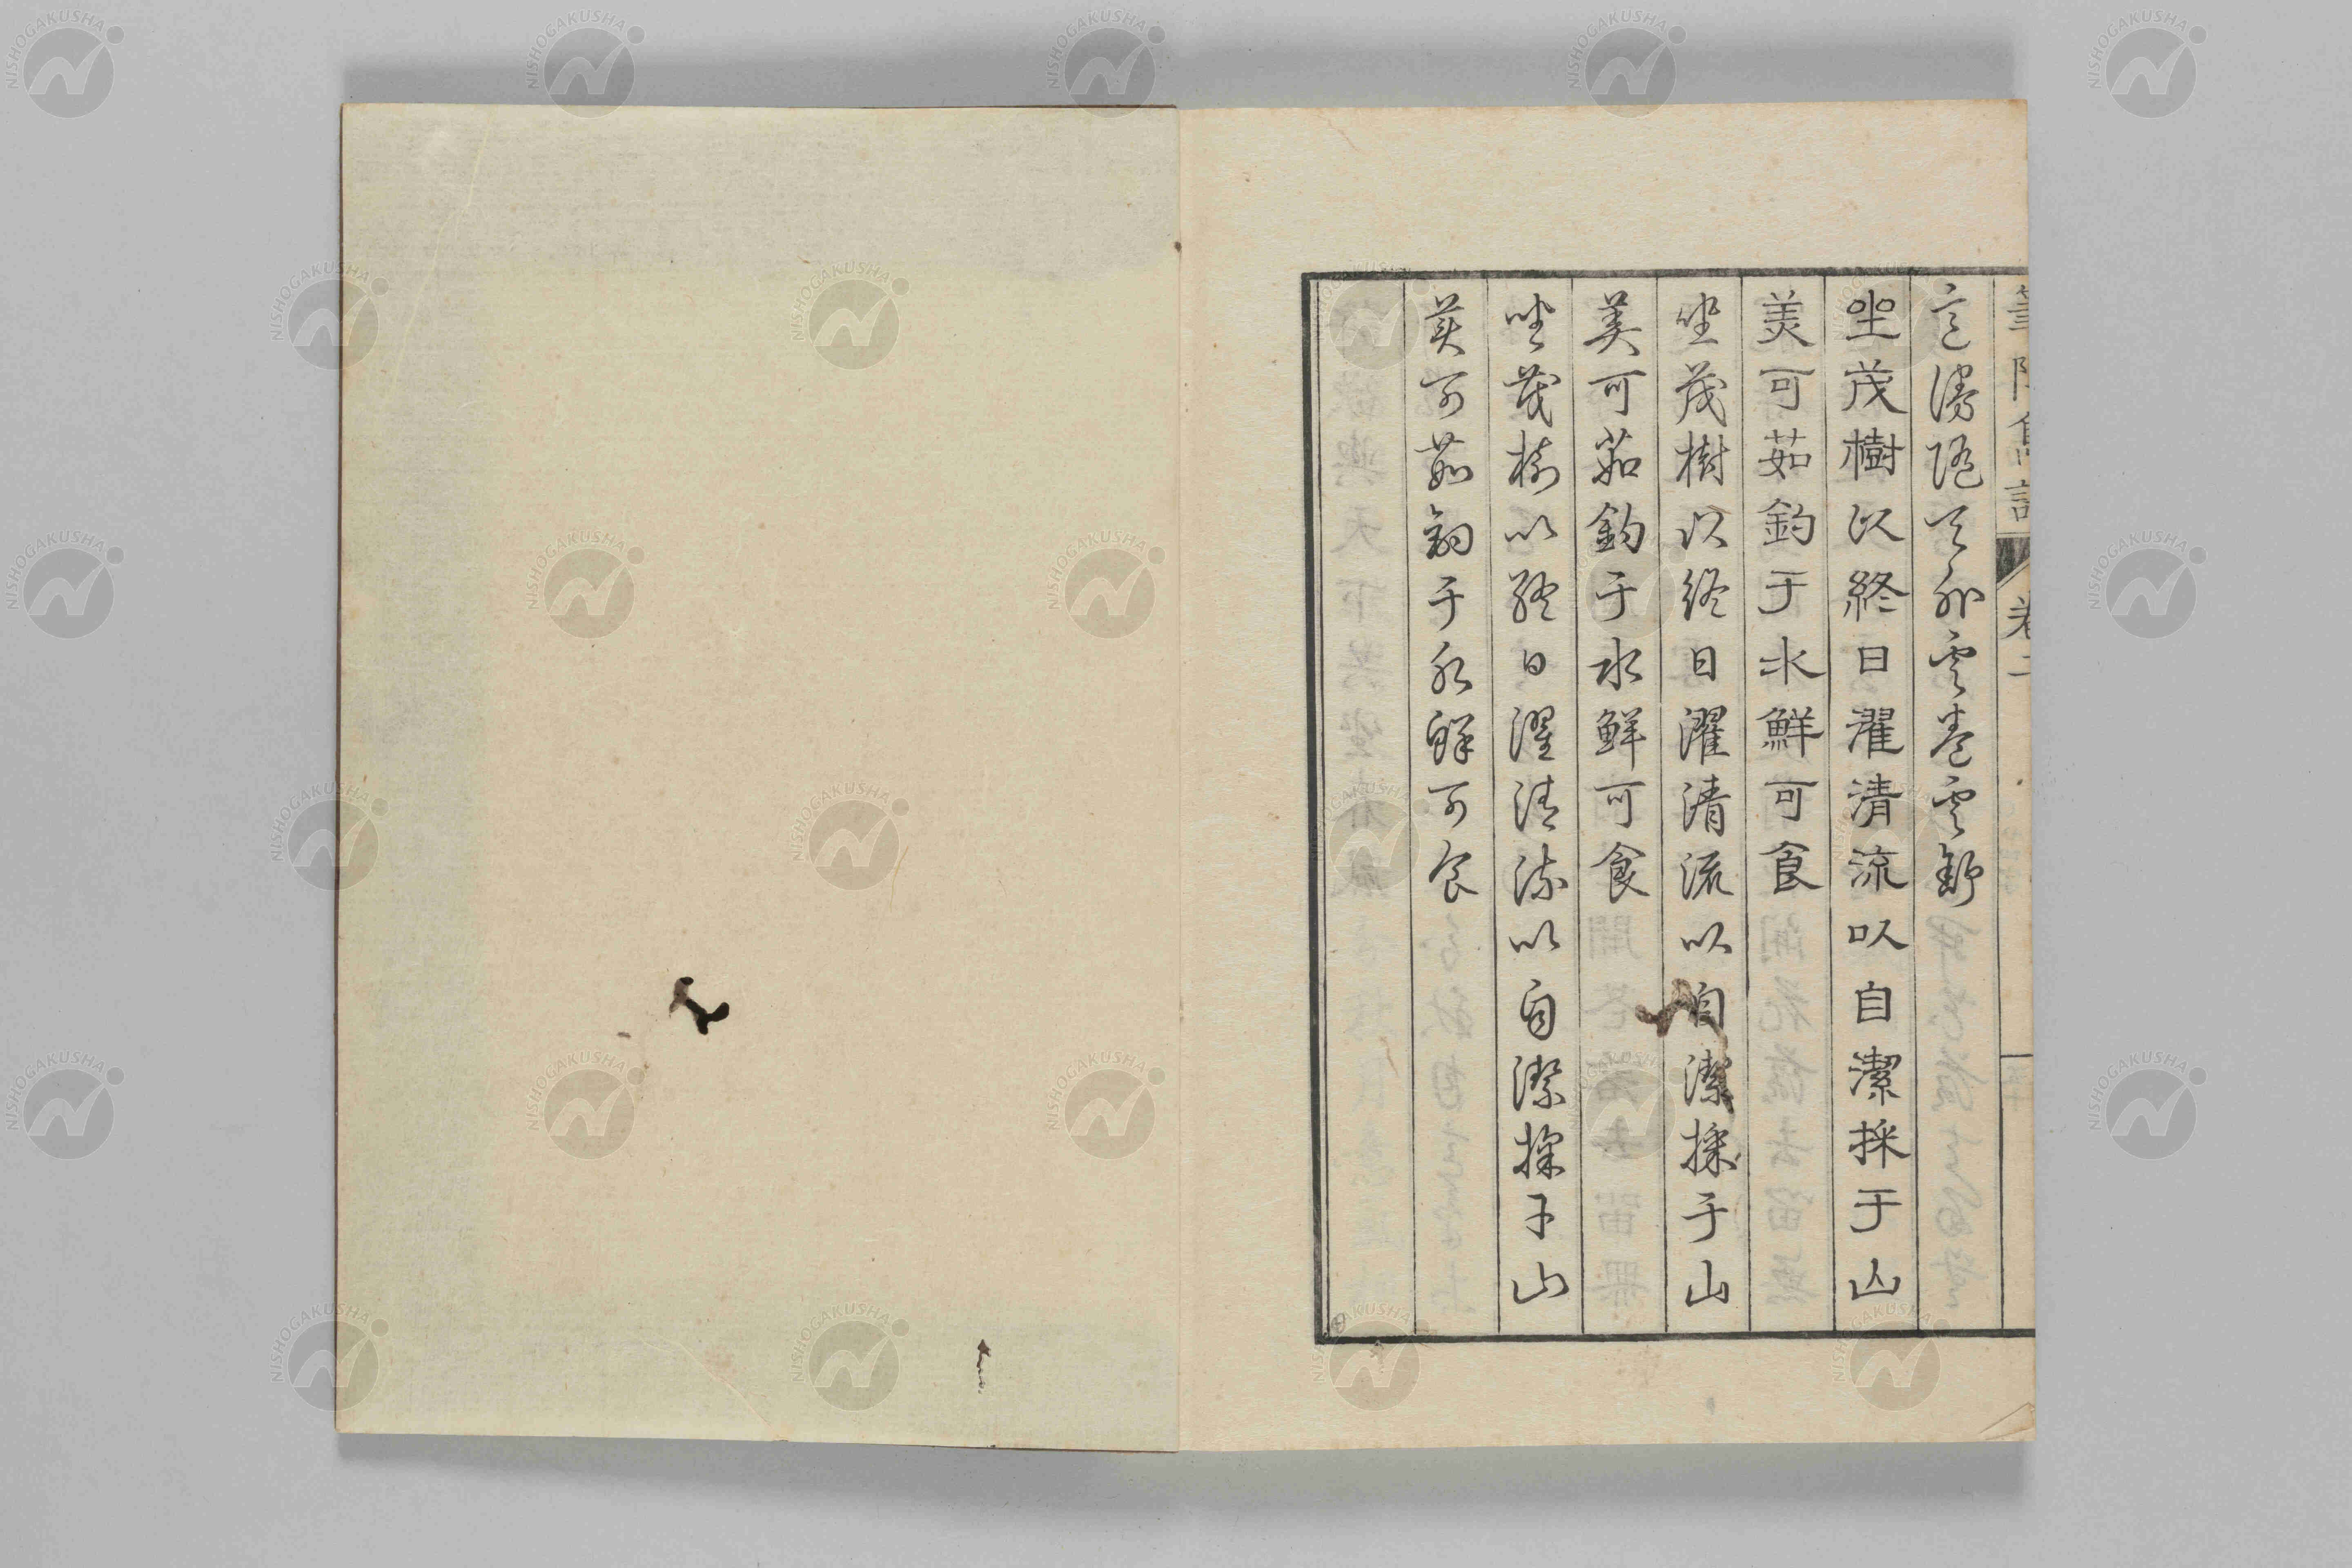 意漫隨天外雲卷雲舒
坐茂樹以終日濯清流以自潔採于山
美可茹釣于水鮮可食
坐茂樹以終日濯清流以自潔採于山
美可茹釣于水鮮可食
坐茂樹以終日濯清流以自潔採于山
美可茹釣于水鮮可食
NISHOGAKUSHA